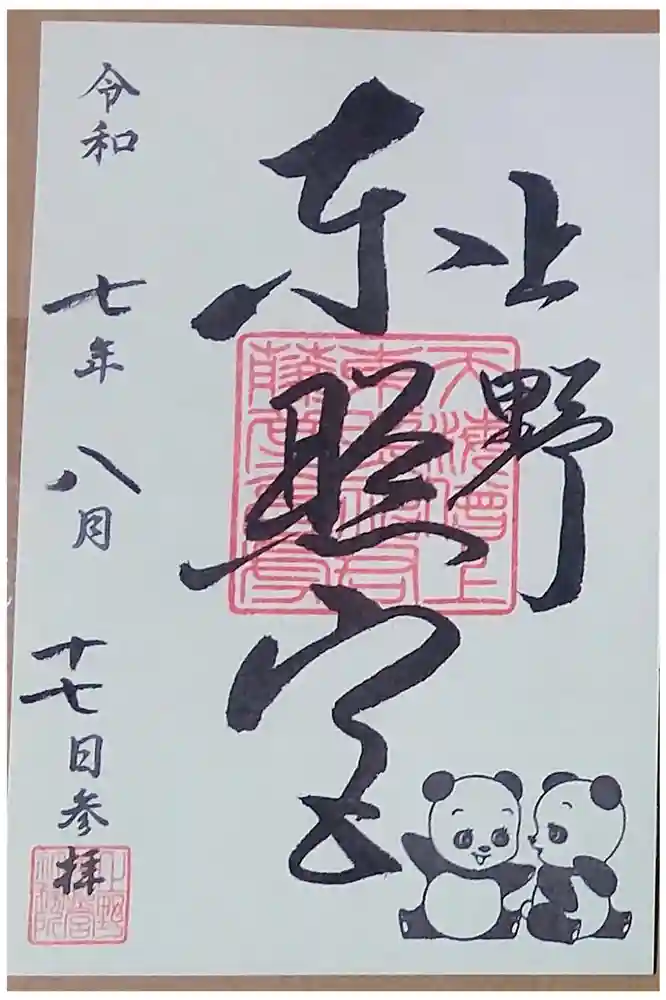 上野
東照宮
令和七年八月十七日参拝